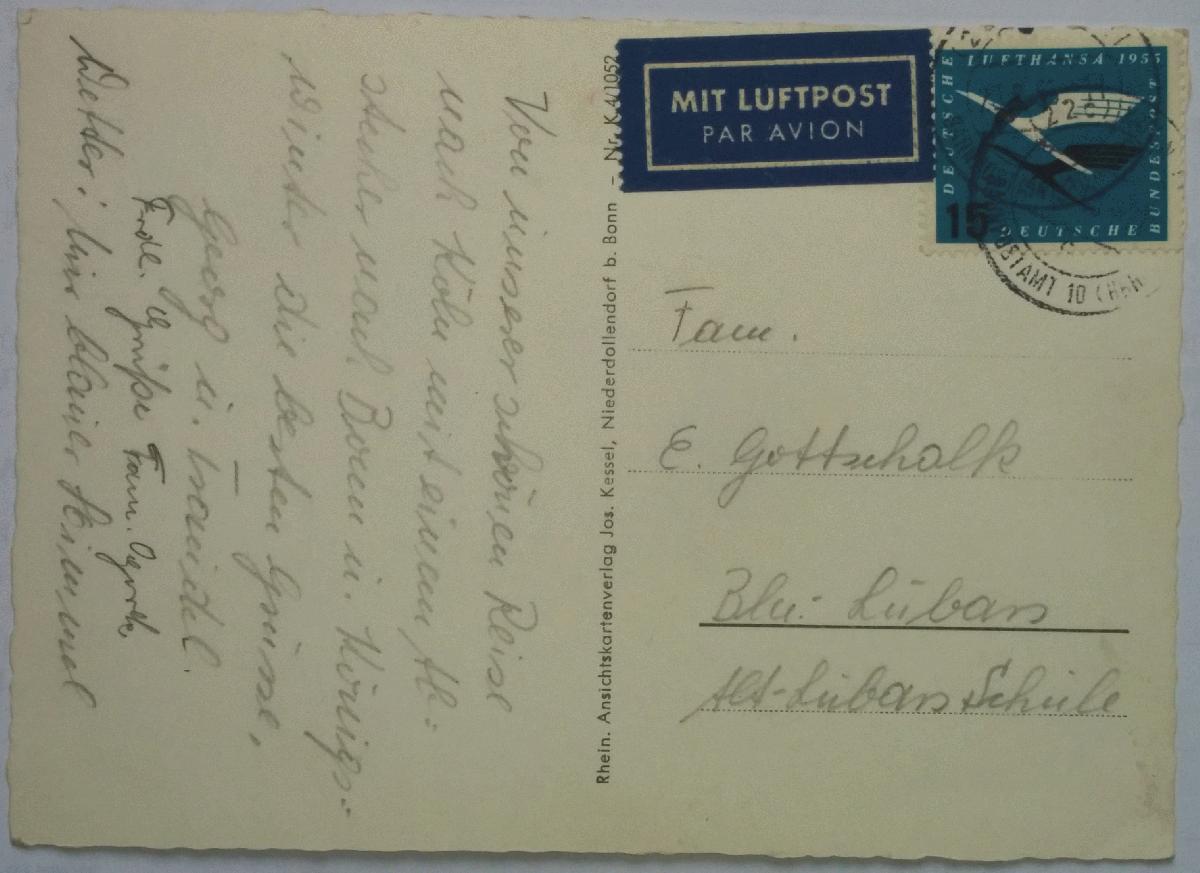 Von unserer schönen Reise
nach Köln mit einem Ab-
stecher nach Bonn u. Königs-
winter die besten Grüsse,
Georg u. Traudel.
Frdl. Grüße Fam.
Wetter: blauer Himmel
Rhein. Ansichtskartenverlag Jos. Kessel, Niederdollendorf b. Bonn – Nr. K 4/1052
MIT LUFTPOST
PAR AVION
DEUTSCHE LUFTHANSA 1955
DEUTSCHE BUNDESPOST
15
POSTAMT 10 (Hbf
Fam.
E. Gottschalk
Bln.- Lübars
Alt-Lübars Schule